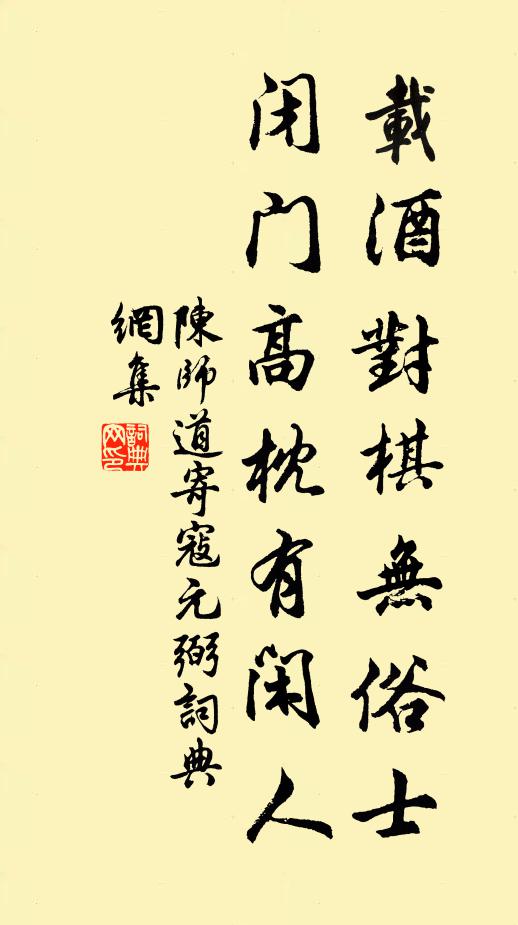 載酒對棋無俗士
闭门高枕有閑人
陳師道寄寇元弼詞典
網集
詞典网印